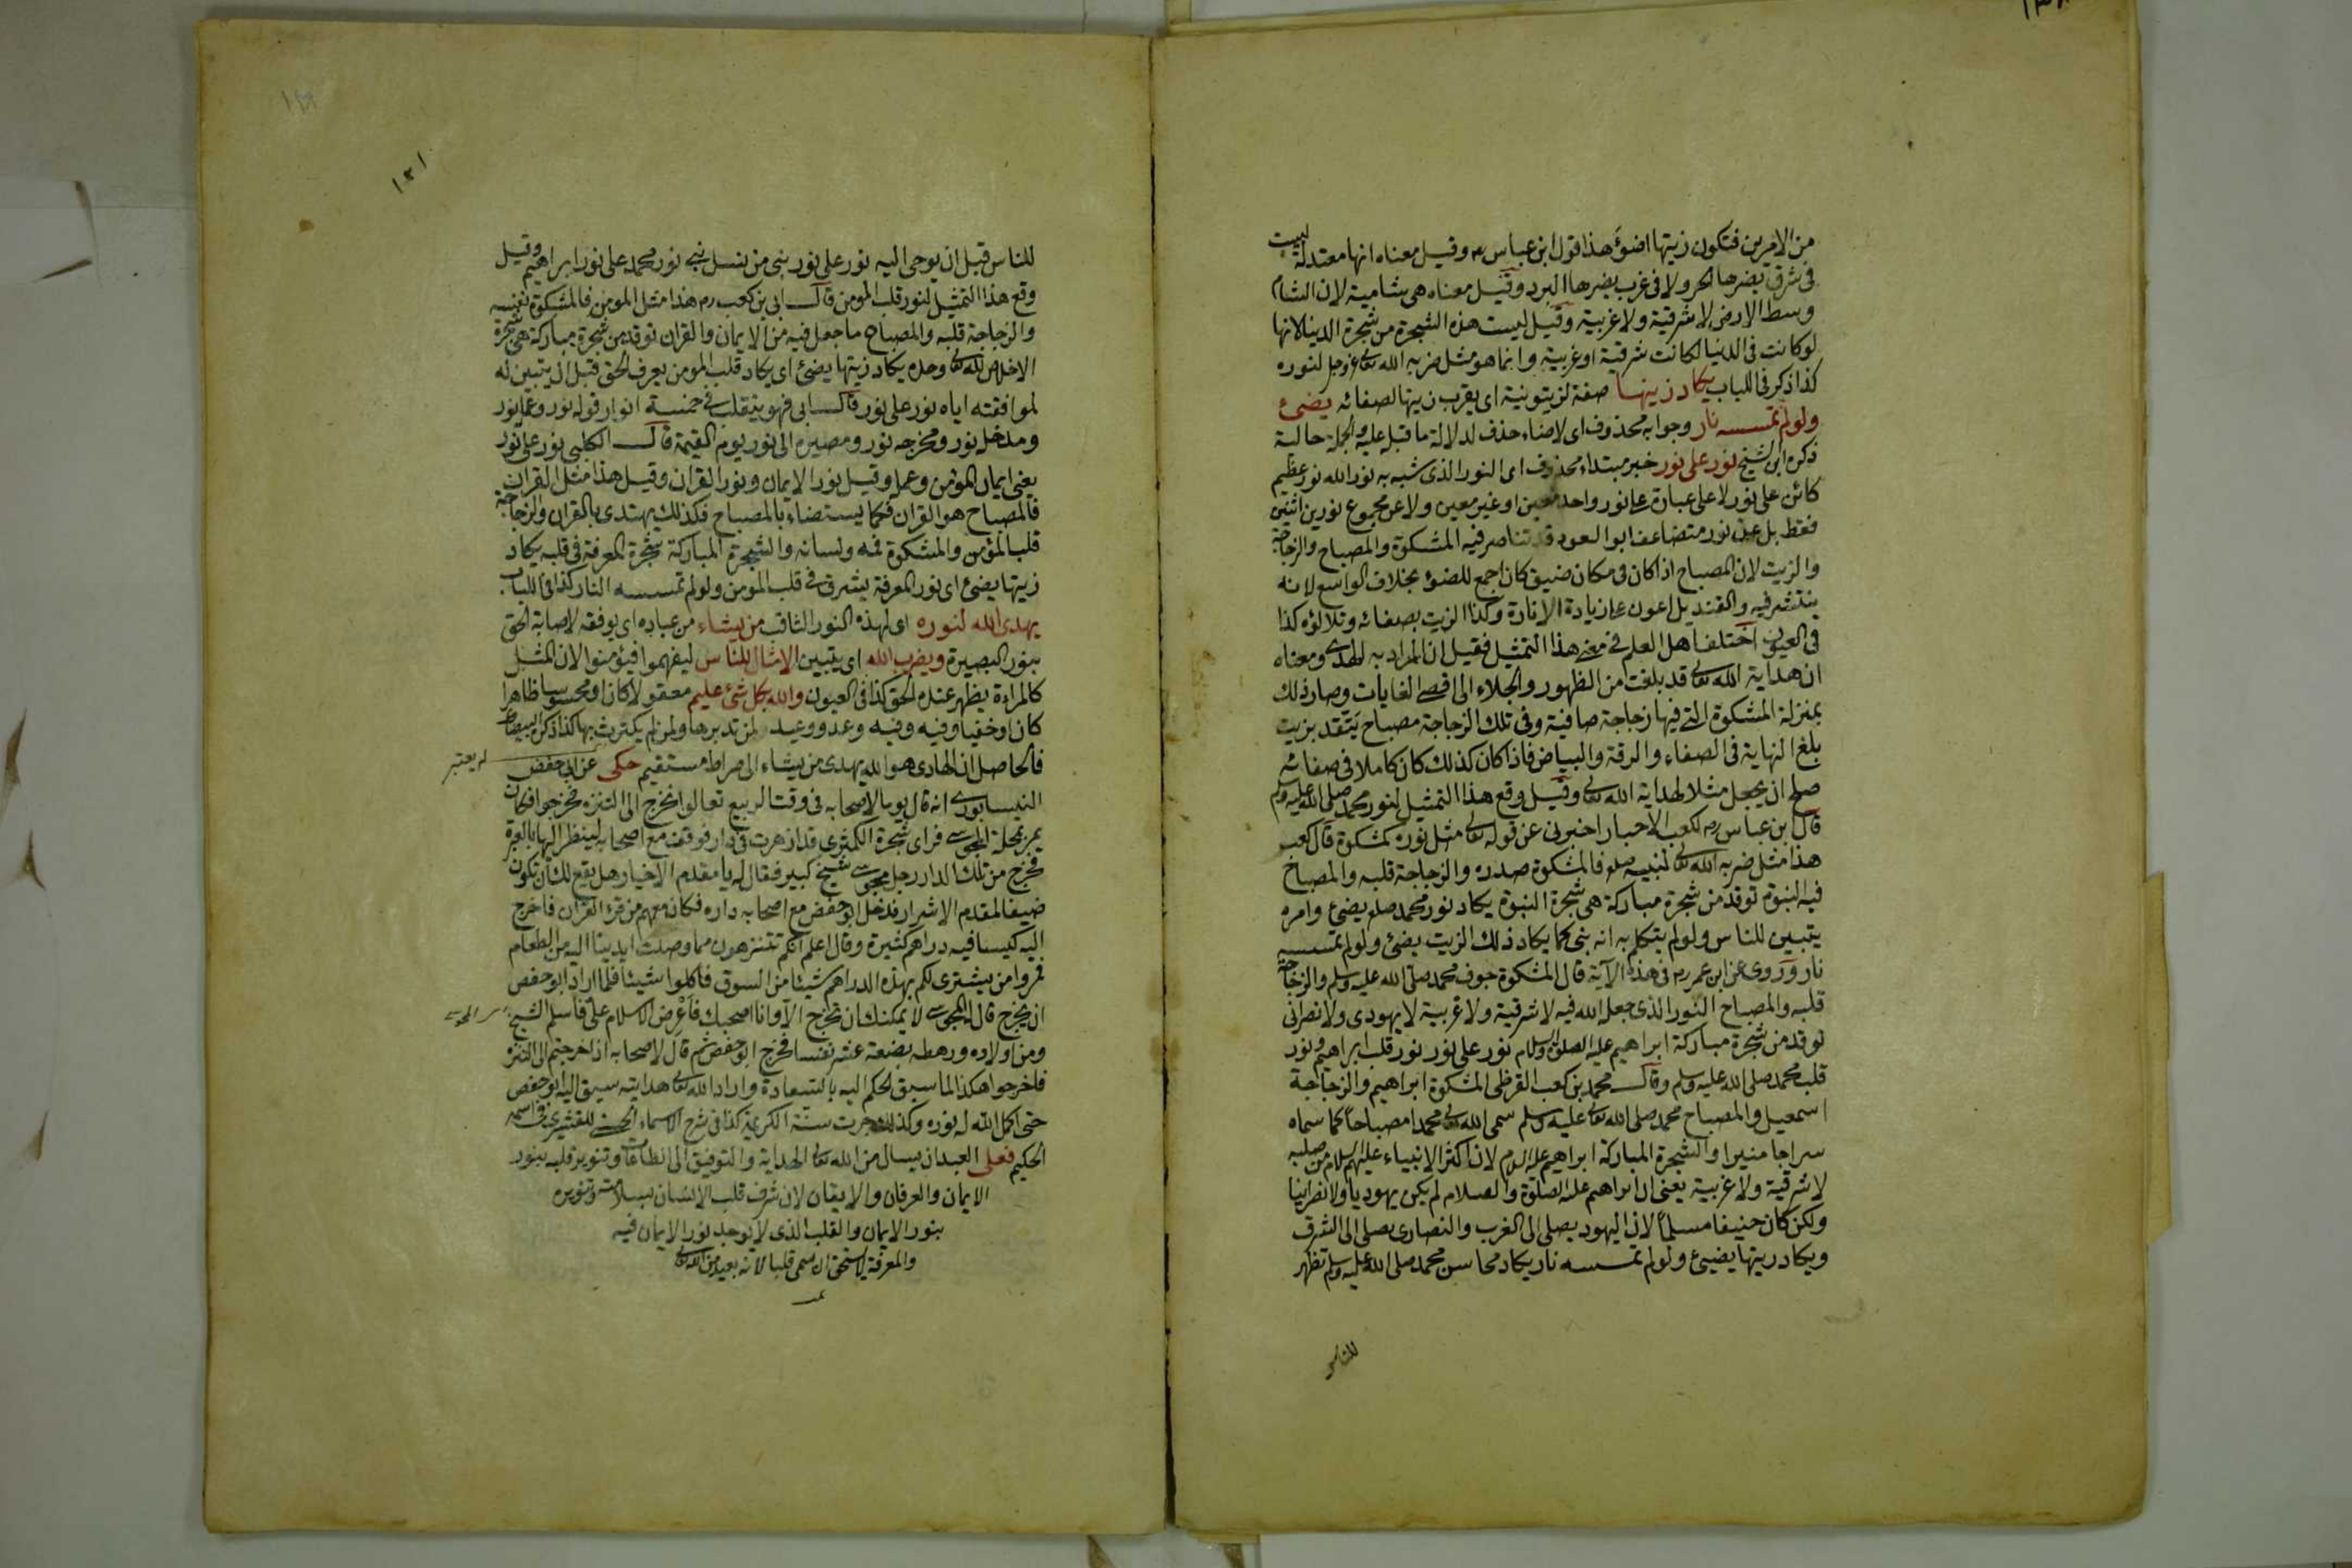 من الامرين فتكون زيتها اضوَءَ هذا قول ابن عباس رم وقيل معناه انها معتدلة ليست
فى شرق يضرها الحر ولا فى غرب يضرها البرد وقيل معناه هى شامية لان الشام
وسط الارض لا شرقية ولا غربية وقيل ليست هذه الشجرة من شجرة الدنيا لانها
لو كانت فى الدنيا لكانت شرقية او غربية وانما هو مثل ضربه الله تعالى عز وجل لنوره
كذا ذكر فى اللباب يكاد زيتها صفة لزيتونية اى يقرب زيتها لصفائه يضئ
ولو لم تمسسه نار وجوابه محذوف اى لاضاء حذف لدلالة ما قبله عليه والجملة حالية
ذكره ابن الشيخ نور على نور خبر مبتداء محذوف اى النور الذى شبه به نور الله نور عظيم
كائن على نور لا على عبارة عن نور واحد معين او غير معين ولا عن مجموع نورين اثنين
فقط بل عن نور متضاعف ابو السعود قد تناصر فيه المشكوة والمصباح والزجاجة
والزيت لان المصباح اذا كان فى مكان ضيق كان اجمع للضوء بخلاف الواسع لانه
ينتشر فيه والقنديل اعون على زيادة الانارة وكذا الزيت بصفائه وتلالؤه كذا
فى العيون اختلف اهل العلم فى معنى هذا التمثيل فقيل ان المراد به الهدى ومعناه
ان هداية الله تعالى قد بلغت من الظهور والجلاء الى اقصى الغايات وصار ذلك
بمنزلة المشكوة التى فيها زجاجة صافية وفى تلك الزجاجة مصباح يتقد بزيت
بلغ النهاية فى الصفاء والرقة والبياض فاذا كان كذلك كان كاملا فى صفائه
صلح ان يجعل مثلا لهداية الله تعالى وقيل وقع هذا التمثيل لنور محمد صلى الله عليه وسلم
قال ابن عباس رم لكعب الاحبار اخبرنى عن قوله تعالى مثل نوره كمشكوة قال كعب
هذا مثل ضربه الله تعالى لنبيه صلعم فالمشكوة صدره والزجاجة قلبه والمصباح
فيه النبوة توقد من شجرة مباركة هى شجرة النبوة يكاد نور محمد صلعم يضئ وامره
يتبين للناس ولو لم يتكلم به انه نبى كما يكاد ذلك الزيت يضئ ولو لم تمسسه
نار وروى عن ابن عمر رم فى هذه الآية قال المشكوة جوف محمد صلى الله عليه وسلم والزجاجة
قلبه والمصباح النور الذى جعل الله فيه لا شرقية ولا غربية لا يهودى ولا نصرانى
توقد من شجرة مباركة ابراهيم عليه الصلوة والسلام نور على نور نور قلب ابراهيم ونور
قلب محمد صلى الله عليه وسلم وقال محمد بن كعب القرظى المشكوة ابراهيم والزجاجة
اسمعيل والمصباح محمد صلى الله تعالى عليه وسلم سمى الله تعالى محمدا مصباحاً كما سماه
سراجا منيرا والشجرة المباركة ابراهيم عليه السلام لان اكثر الانبياء عليهم السلام من صلبه
لا شرقية ولا غربية يعنى ان ابراهيم عليه الصلوة والسلام لم يكن يهوديا ولا نصرانيا
ولكن كان حنيفا مسلماً لان اليهود يصلى الى الغرب والنصارى يصلى الى الشرق
ويكاد زيتها يضيئ ولو لم تمسسه نار يكاد محاسن محمد صلى الله عليه وسلم تظهر
للناس
١٣١
للناس قبل ان يوحى اليه نور على نور نبى من نسل نبى نور محمد على نور ابراهيم وقيل
وقع هذا التمثيل لنور قلب المومن قال ابى بن كعب رم هذا مثل المومن فالمشكوة نفسه
والزجاجة قلبه والمصباح ما جعل فيه من الايمان والقران توقد من شجرة مباركة هى شجرة
الاخلاص لله تعالى وحده يكاد زيتها يضئ اى يكاد قلب المومن يعرف الحق قبل ان يتبين له
لموافقته اياه نور على نور قال ابى فهو يتقلب فى خمسة انوار قوله نور وعمله نور
ومدخله نور ومخرجه نور ومصيره الى نور يوم القيمة قال الكلبى نور على نور
يعنى ايمان المؤمن وعمله وقيل نور الايمان ونور القران وقيل هذا مثل القران
فالمصباح هو القران فكما يستضاء بالمصباح فكذلك يهتدى بالقران والزجاجة
قلب المؤمن والمشكوة فمه ولسانه والشجرة المباركة شجرة المعرفة فى قلبه يكاد
زيتها يضئ اى نور المعرفة يشرق فى قلب المومن ولو لم تمسسه النار كذا فى اللباب
يهدى الله لنوره اى لهذه النور الثاقب من يشاء من عباده اى يوفقه لاصابة الحق
بنور البصيرة ويضرب الله اى يتبين الامثال للناس ليفهموا فيؤمنوا لان المثل
كالمراءة يظهر عنده الحق كذا فى العيون والله بكل شئ عليم معقولا كان او محسوسا ظاهرا
كان او خفيا وفيه وفيه وعد ووعيد لمن تدبرها ولمن لم يكترث بها كذا ذكره البيضاوى
فالحاصل ان الهادى هو الله يهدى من يشاء الى صراط مستقيم حكى عن ابى حفص
النيسابورى انه قال يوما لاصحابه فى وقت الربيع تعالوا نخرج الى التنزه فخرجوا فكان
يمر بمحلة المجوسى فراى شجرة الكمثرى قد ازهرت فى دار فوقف مع اصحابه لينظر اليها بالعبرة
فخرج من تلك الدار رجل مجوسى شيخ كبير فقال له يا مقدم الاخيار هل يقع لك ان تكون
ضيفا لمقدم الاشرار فدخل ابو حفص مع اصحابه داره فكان معهم من قرء القران فاخرج
اليه كيسا فيه دراهم كثيرة وقال اعلم انكم تتنزهون مما وصلت ايدينا اليه من الطعام
فمروا من يشترى لكم بهذه الدراهم شيئا من السوق فاكلوا شيئا فلما اراد ابو حفص
ان يخرج قال المجوسى لا يمكنك ان تخرج الا وانا اصحبك فاعرض الاسلام على فاسلم الشيخ
ومن اولاده ورهطه بضعة عشر نفسا فخرج ابو حفص ثم قال لاصحابه اذا خرجتم الى التنزه
فاخرجوا هكذا لما سبق الحكم اليه بالسعادة واراد الله تعالى هدايته سيق اليه ابو حفص
حتى اكمل الله له نوره وكذلك جرت سنة الكريم كذا فى شرح الاسماء الحسنى للقشيرى فى اسمه
الحكيم فعلى العبد ان يسال من الله تعالى الهداية والتوفيق الى الطاعات وتنوير قلبه بنور
الايمان والعرفان والايقان لان شرف قلب الانسان بسلامته وتنويره
بنور الايمان والقلب الذى لا يوجد نور الايمان فيه
والمعرفة لا يستحق ان يسمى قلبا لانه بعيد من الله تعالى